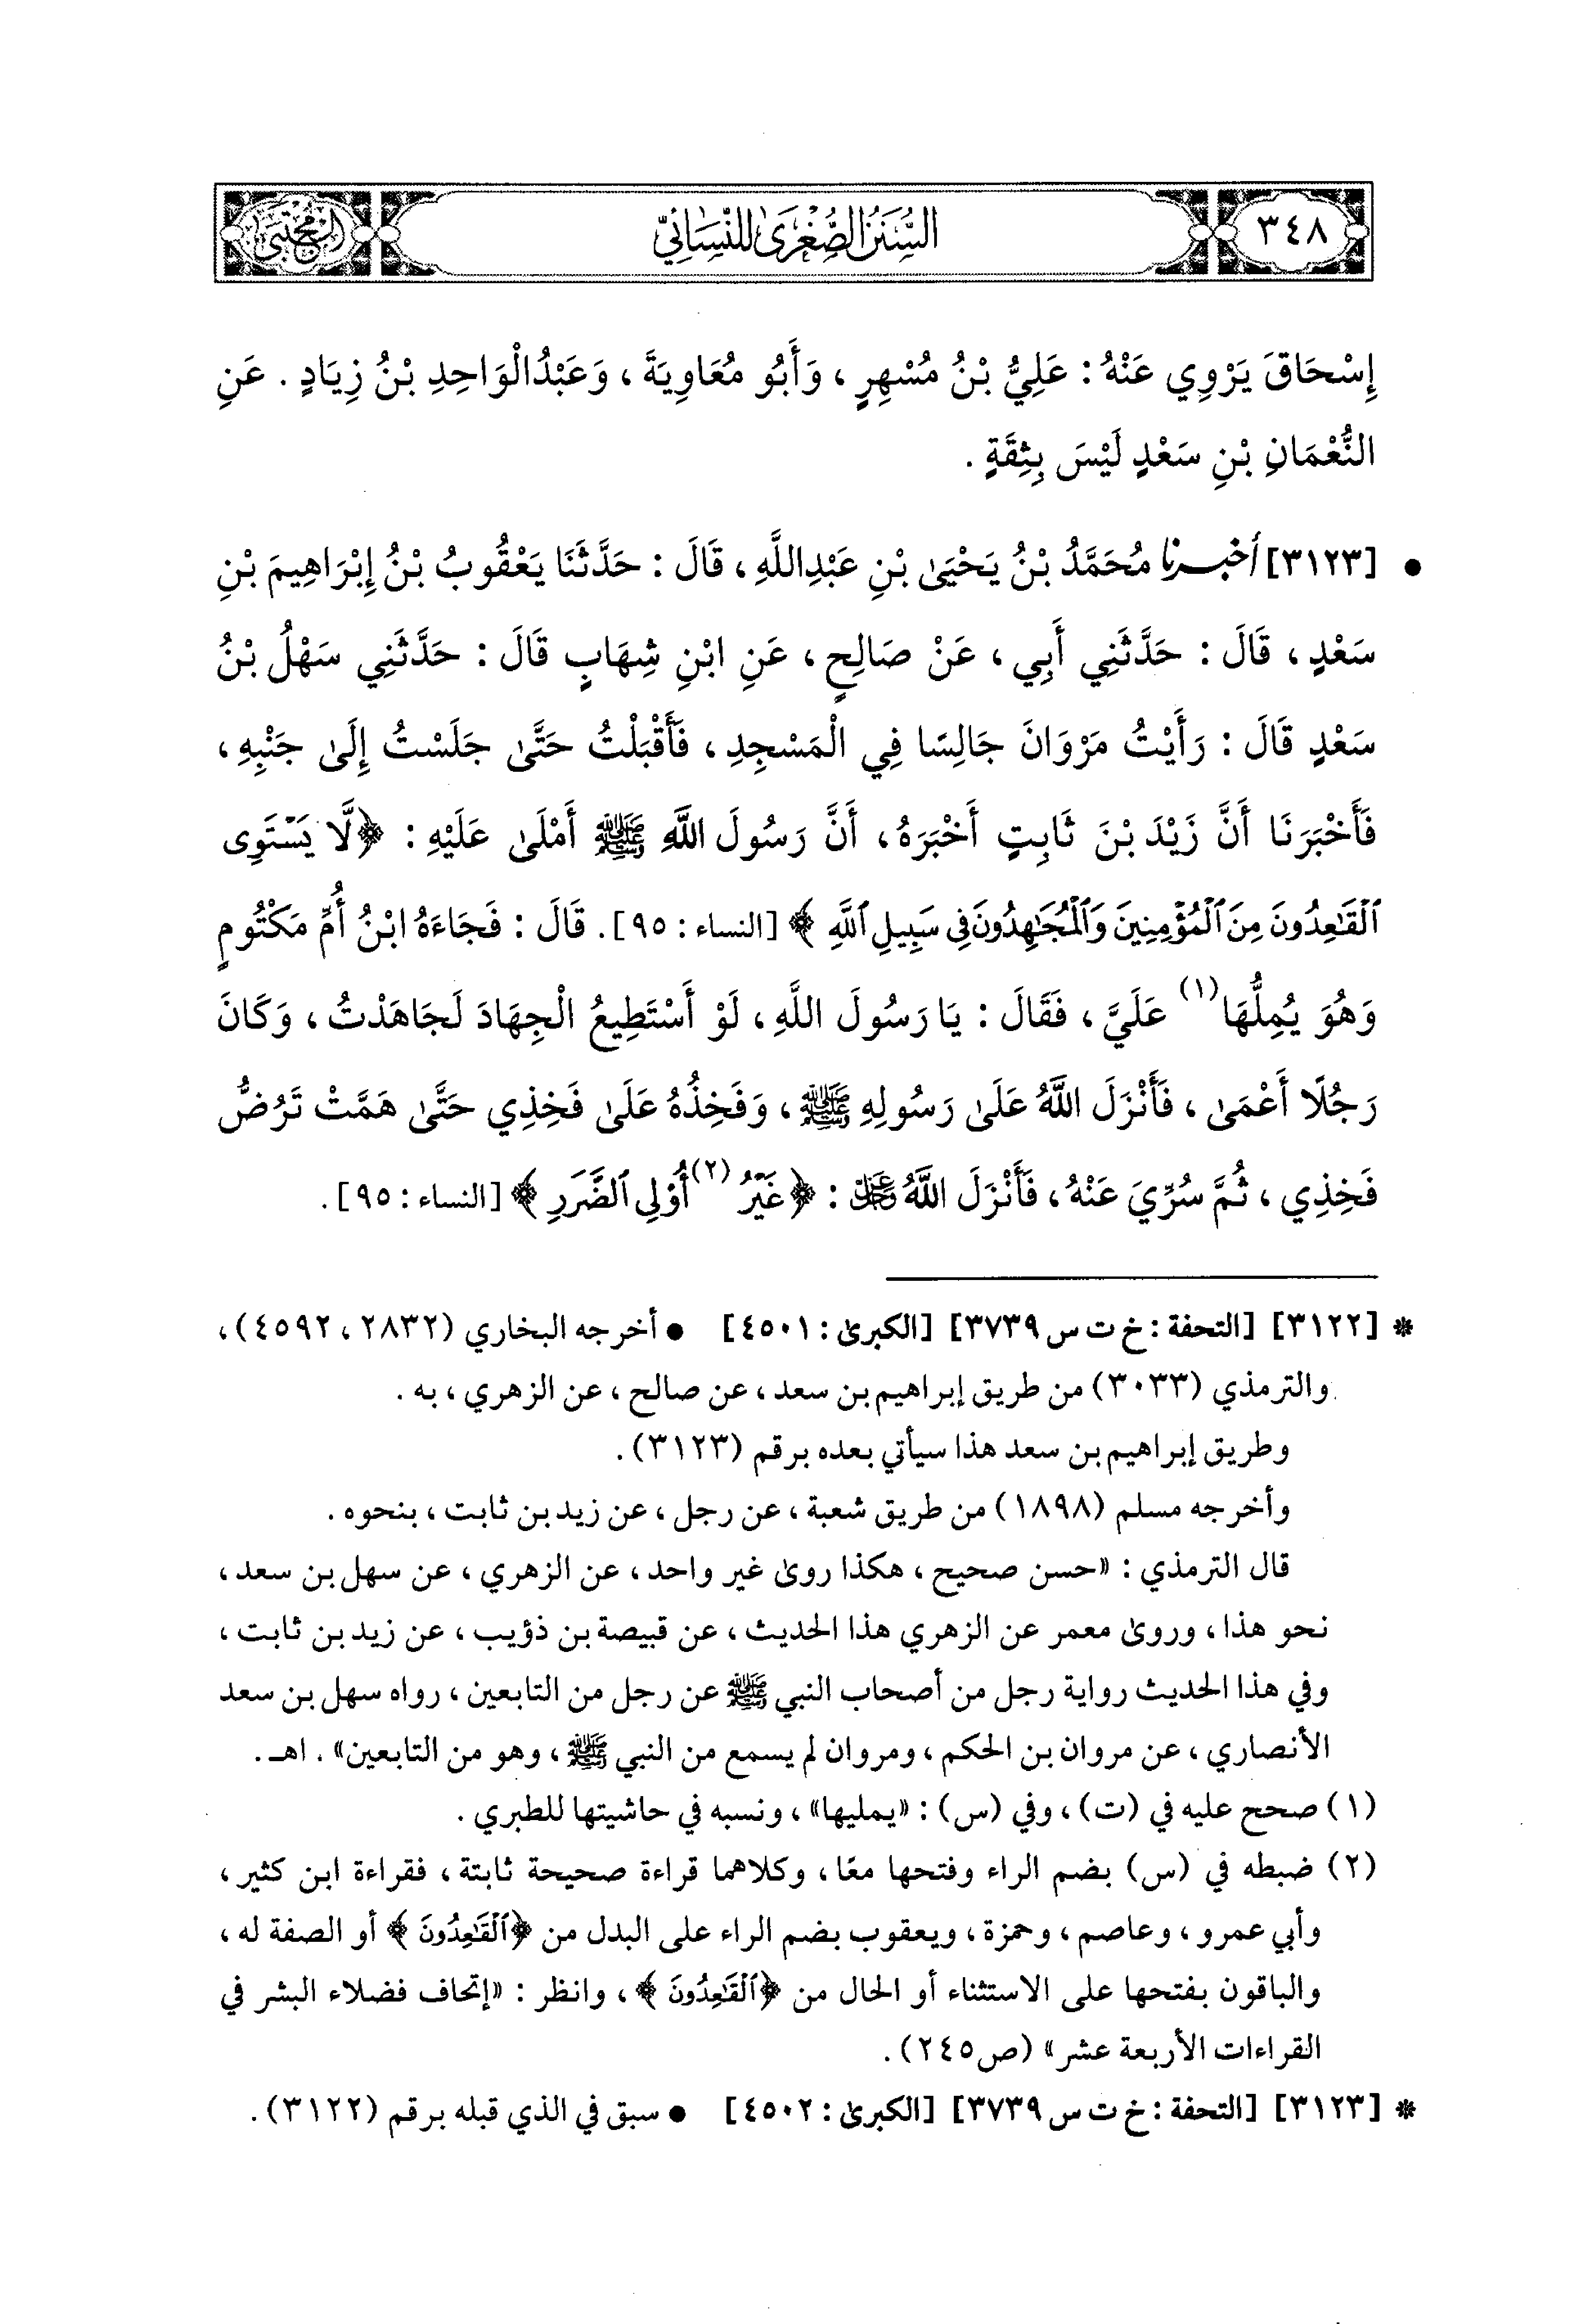 ٣٤٨
السُّنَنُ الصُّغْرَىٰ لِلنَّسَائِيِّ
المجتبى
إِسْحَاقَ يَرْوِي عَنْهُ : عَلِيُّ بْنُ مُسْهِرٍ ، وَأَبُو مُعَاوِيَةَ ، وَعَبْدُالْوَاحِدِ بْنُ زِيَادٍ . عَنِ
النُّعْمَانِ بْنِ سَعْدٍ لَيْسَ بِثِقَةٍ .
• [٣١٢٣] أخبرنا مُحَمَّدُ بْنُ يَحْيَىٰ بْنِ عَبْدِاللَّهِ ، قَالَ : حَدَّثَنَا يَعْقُوبُ بْنُ إِبْرَاهِيمَ بْنِ
سَعْدٍ ، قَالَ : حَدَّثَنِي أَبِي ، عَنْ صَالِحٍ ، عَنِ ابْنِ شِهَابٍ قَالَ : حَدَّثَنِي سَهْلُ بْنُ
سَعْدٍ قَالَ : رَأَيْتُ مَرْوَانَ جَالِسًا فِي الْمَسْجِدِ ، فَأَقْبَلْتُ حَتَّىٰ جَلَسْتُ إِلَىٰ جَنْبِهِ ،
فَأَخْبَرَنَا أَنَّ زَيْدَ بْنَ ثَابِتٍ أَخْبَرَهُ ، أَنَّ رَسُولَ اللَّهِ ﷺ أَمْلَىٰ عَلَيْهِ : ﴿لَّا يَسْتَوِى
ٱلْقَٰعِدُونَ مِنَ ٱلْمُؤْمِنِينَ وَٱلْمُجَٰهِدُونَ فِى سَبِيلِ ٱللَّهِ ﴾ [النساء : ٩٥] . قَالَ : فَجَاءَهُ ابْنُ أُمِّ مَكْتُومٍ
وَهُوَ يُمِلُّهَا(١) عَلَيَّ ، فَقَالَ : يَا رَسُولَ اللَّهِ ، لَوْ أَسْتَطِيعُ الْجِهَادَ لَجَاهَدْتُ ، وَكَانَ
رَجُلًا أَعْمَىٰ ، فَأَنْزَلَ اللَّهُ عَلَىٰ رَسُولِهِ ﷺ ، وَفَخِذُهُ عَلَىٰ فَخِذِي حَتَّىٰ هَمَّتْ تَرُضُّ
فَخِذِي ، ثُمَّ سُرِّيَ عَنْهُ ، فَأَنْزَلَ اللَّهُ عَزَّ وَجَلَّ : ﴿غَيْرُ(٢) أُوْلِى ٱلضَّرَرِ ﴾ [النساء : ٩٥] .
* [٣١٢٢] [التحفة : خ ت س ٣٧٣٩] [الكبرىٰ : ٤٥٠١] • أخرجه البخاري (٢٨٣٢ ، ٤٥٩٢) ،
والترمذي (٣٠٣٣) من طريق إبراهيم بن سعد ، عن صالح ، عن الزهري ، به .
وطريق إبراهيم بن سعد هذا سيأتي بعده برقم (٣١٢٣) .
وأخرجه مسلم (١٨٩٨) من طريق شعبة ، عن رجل ، عن زيد بن ثابت ، بنحوه .
قال الترمذي : «حسن صحيح ، هكذا روىٰ غير واحد ، عن الزهري ، عن سهل بن سعد ،
نحو هذا ، وروىٰ معمر عن الزهري هذا الحديث ، عن قبيصة بن ذؤيب ، عن زيد بن ثابت ،
وفي هذا الحديث رواية رجل من أصحاب النبي ﷺ عن رجل من التابعين ، رواه سهل بن سعد
الأنصاري ، عن مروان بن الحكم ، ومروان لم يسمع من النبي ﷺ ، وهو من التابعين» . اهـ .
(١) صحح عليه في (ت) ، وفي (س) : «يمليها» ، ونسبه في حاشيتها للطبري .
(٢) ضبطه في (س) بضم الراء وفتحها معًا ، وكلاهما قراءة صحيحة ثابتة ، فقراءة ابن كثير ،
وأبي عمرو ، وعاصم ، وحمزة ، ويعقوب بضم الراء على البدل من ﴿ٱلْقَٰعِدُونَ ﴾ أو الصفة له ،
والباقون بفتحها على الاستثناء أو الحال من ﴿ٱلْقَٰعِدُونَ ﴾ ، وانظر : «إتحاف فضلاء البشر في
القراءات الأربعة عشر» (ص٢٤٥) .
* [٣١٢٣] [التحفة : خ ت س ٣٧٣٩] [الكبرىٰ : ٤٥٠٢] • سبق في الذي قبله برقم (٣١٢٢) .